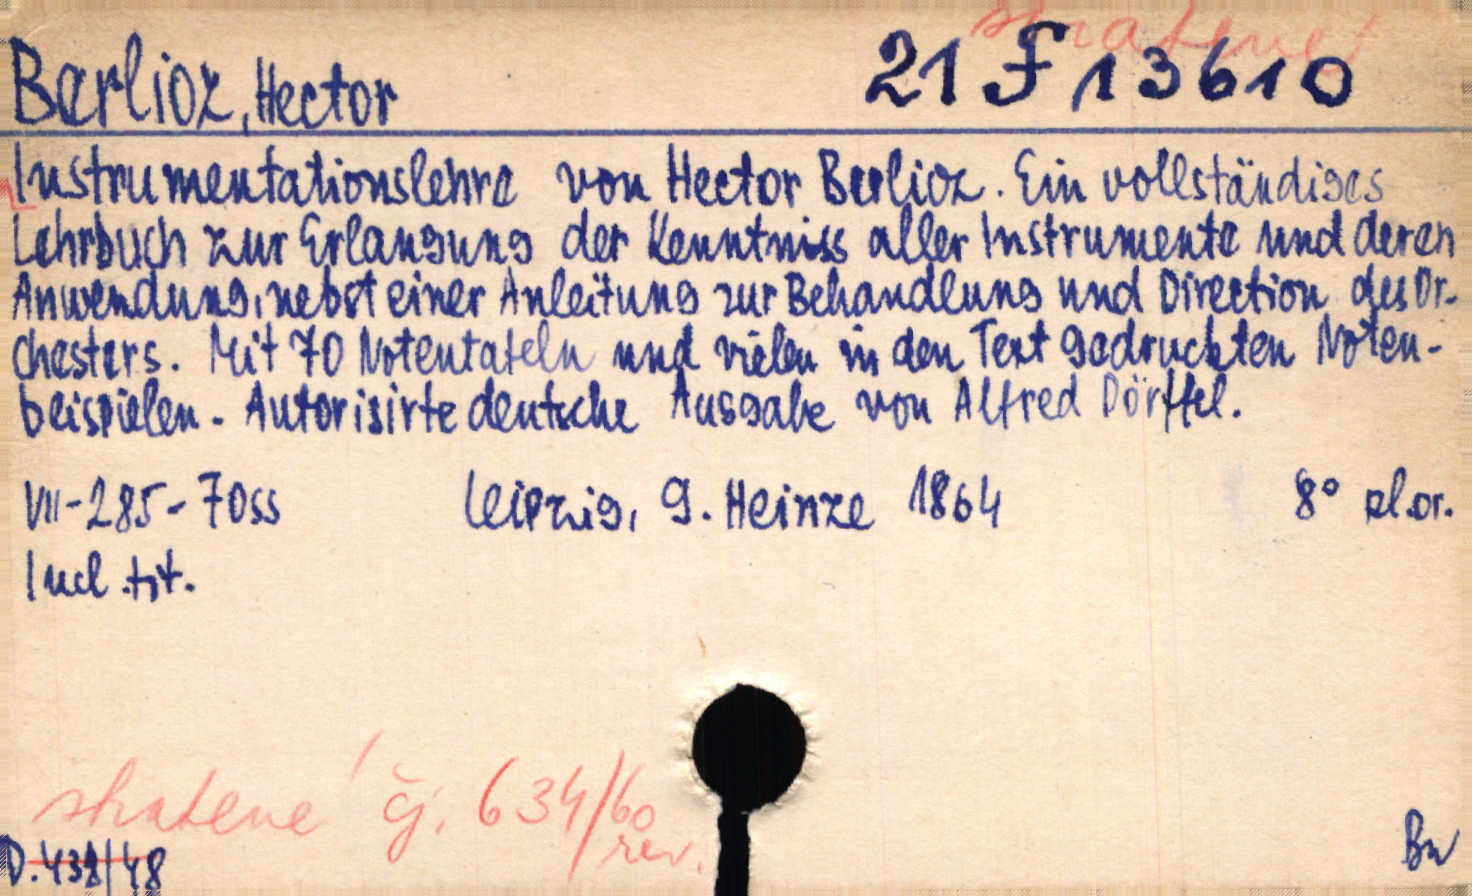 stratené
Berlioz, Hector 21 F 13610
Instrumentationslehre von Hector Berlioz. Ein vollständiges
Lehrbuch zur Erlangung der Kenntniss aller Instrumente und deren
Anwendung, nebst einer Anleitung zur Behandlung und Direction des Or-
chesters. Mit 70 Notentafeln und vielen in den Text gedruckten Noten-
beispielen. Autorisirte deutsche Ausgabe von Alfred Dörffel.
VII-285-70ss Leipzig, G. Heinze 1864 8° pl.or.
Incl. tit.
stratené čj. 634/60
rev.
D.438/48 Bu